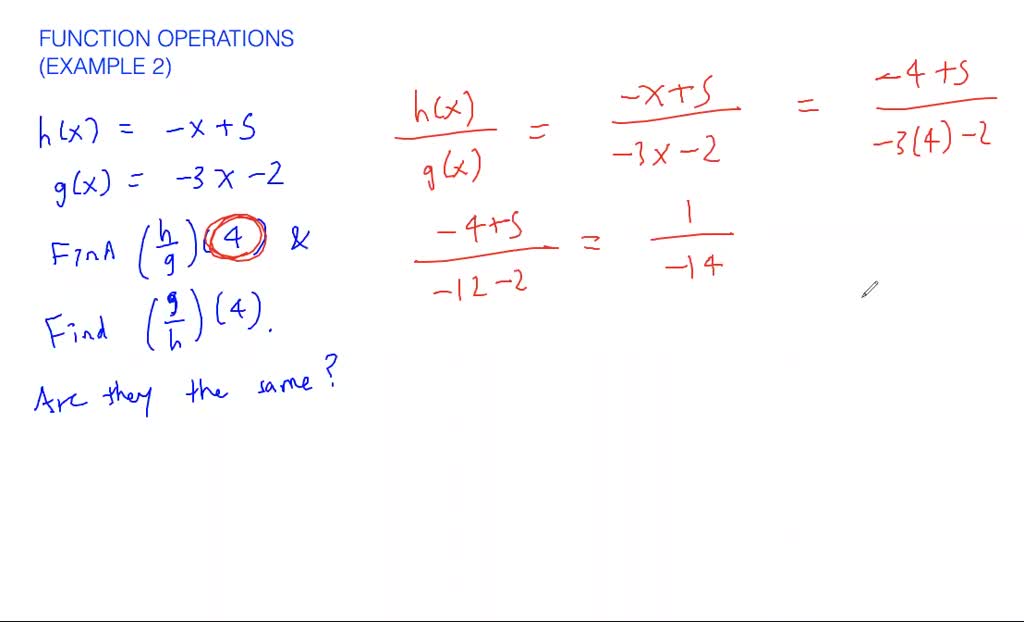 FUNCTION OPERATIONS
(EXAMPLE 2)
h(x) = -x + 5
g(x) = -3x - 2
Find (h/g)(4) &
Find (g/h)(4).
Are they the same?
h(x)/g(x) = (-x+5)/(-3x-2) = (-4+5)/(-3(4)-2)
(-4+5)/(-12-2) = 1/(-14)